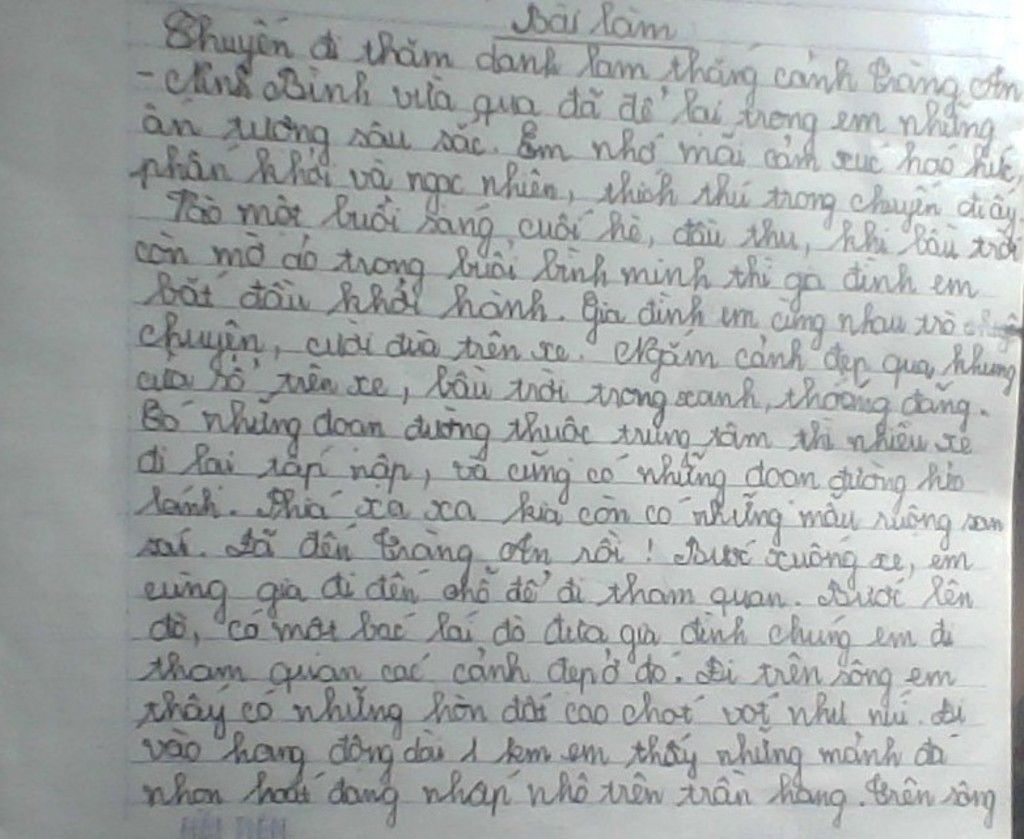 Bài làm
Chuyến đi thăm danh lam thắng cảnh Tràng An
- Ninh Bình vừa qua đã để lại trong em những
ấn tượng sâu sắc. Em nhớ mãi cảm xúc háo hức,
phấn khởi và ngạc nhiên, thích thú trong chuyến đi ấy.
Vào một buổi sáng cuối hè, đầu thu, khi bầu trời
còn mờ ảo trong buổi bình minh thì ga đình em
bắt đầu khởi hành. Gia đình em cùng nhau trò
chuyện, cười đùa trên xe. Ngắm cảnh đẹp qua khung
cửa sổ trên xe, bầu trời trong xanh, thoáng đãng.
Có những đoạn đường thuộc trung tâm thì nhiều xe
đi lại tấp nập, và cũng có những đoạn đường hẻo
lánh. Phía xa xa kia còn có những mẫu ruộng san
sát. Đã đến Tràng An rồi! Bước xuống xe, em
cùng gia đi đến chỗ để đi tham quan. Bước lên
đò, có một bác lái đò đưa gia đình chúng em đi
tham quan các cảnh đẹp ở đó. Đi trên sông em
thấy có những hòn đất cao chót vót như núi. Đi
vào hang động dài 1 km em thấy những mảnh đá
nhọn hoắt đang nhấp nhô trên trần hang. Trên sông
HẢI TIẾN